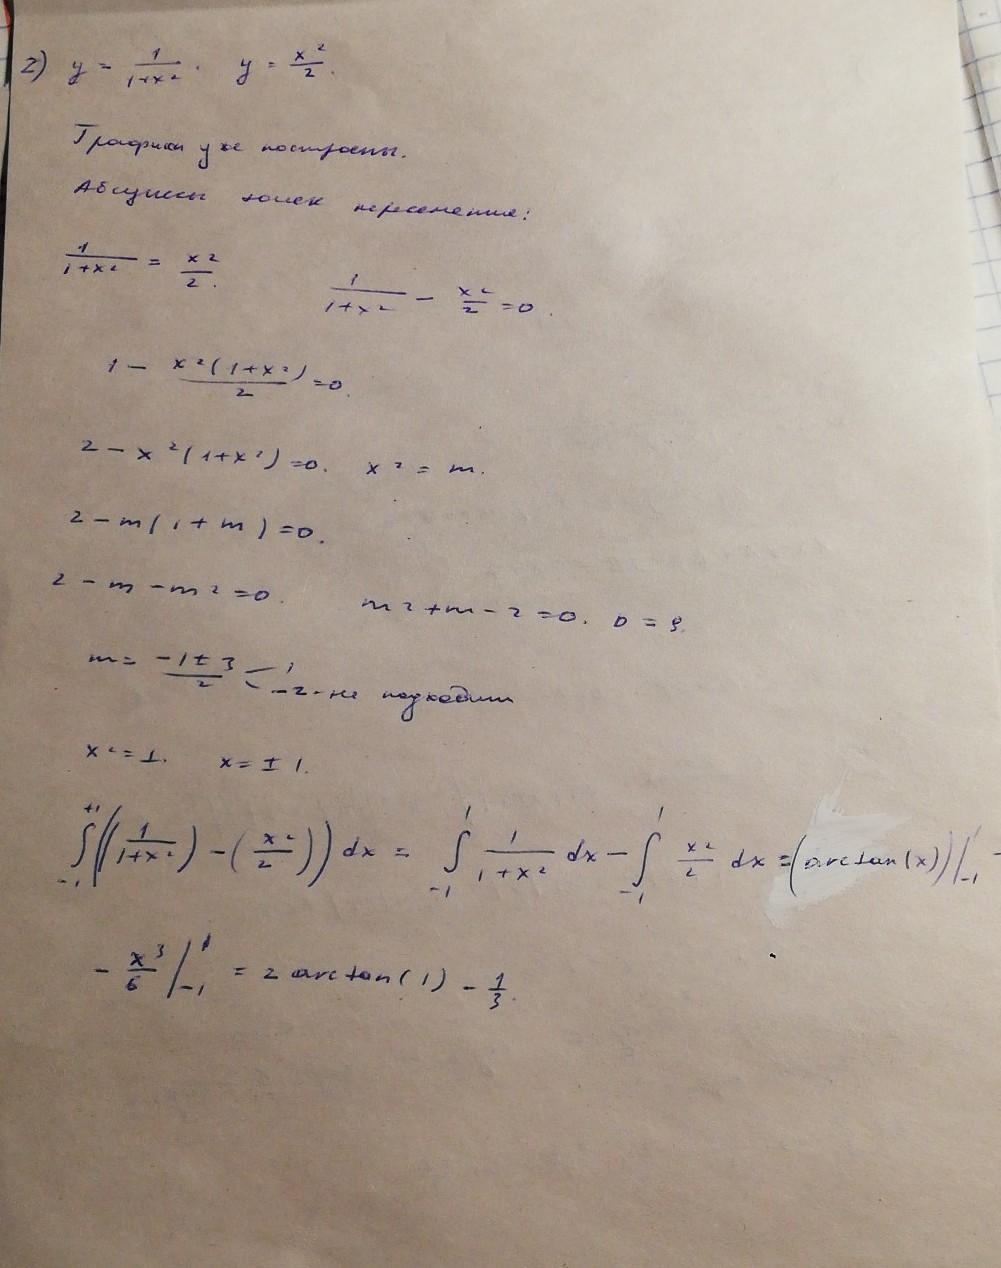 2) y = 1/(1+x²). y = x²/2.
Графики уже построены.
Абсциссы точек пересечения:
1/(1+x²) = x²/2. 1/(1+x²) - x²/2 = 0.
1 - x²(1+x²)/2 = 0.
2 - x²(1+x²) = 0. x² = m.
2 - m(1+m) = 0.
2 - m - m² = 0. m² + m - 2 = 0. D = 9.
m = (-1±3)/2 < 1 -2 - не подходит
x² = 1. x = ±1.
∫₋₁⁺¹((1/(1+x²)) - (x²/2)) dx = ∫₋₁¹ 1/(1+x²) dx - ∫₋₁¹ x²/2 dx = (arctan(x))|₋₁¹ -
- x³/6 |₋₁¹ = 2 arctan(1) - 1/3.